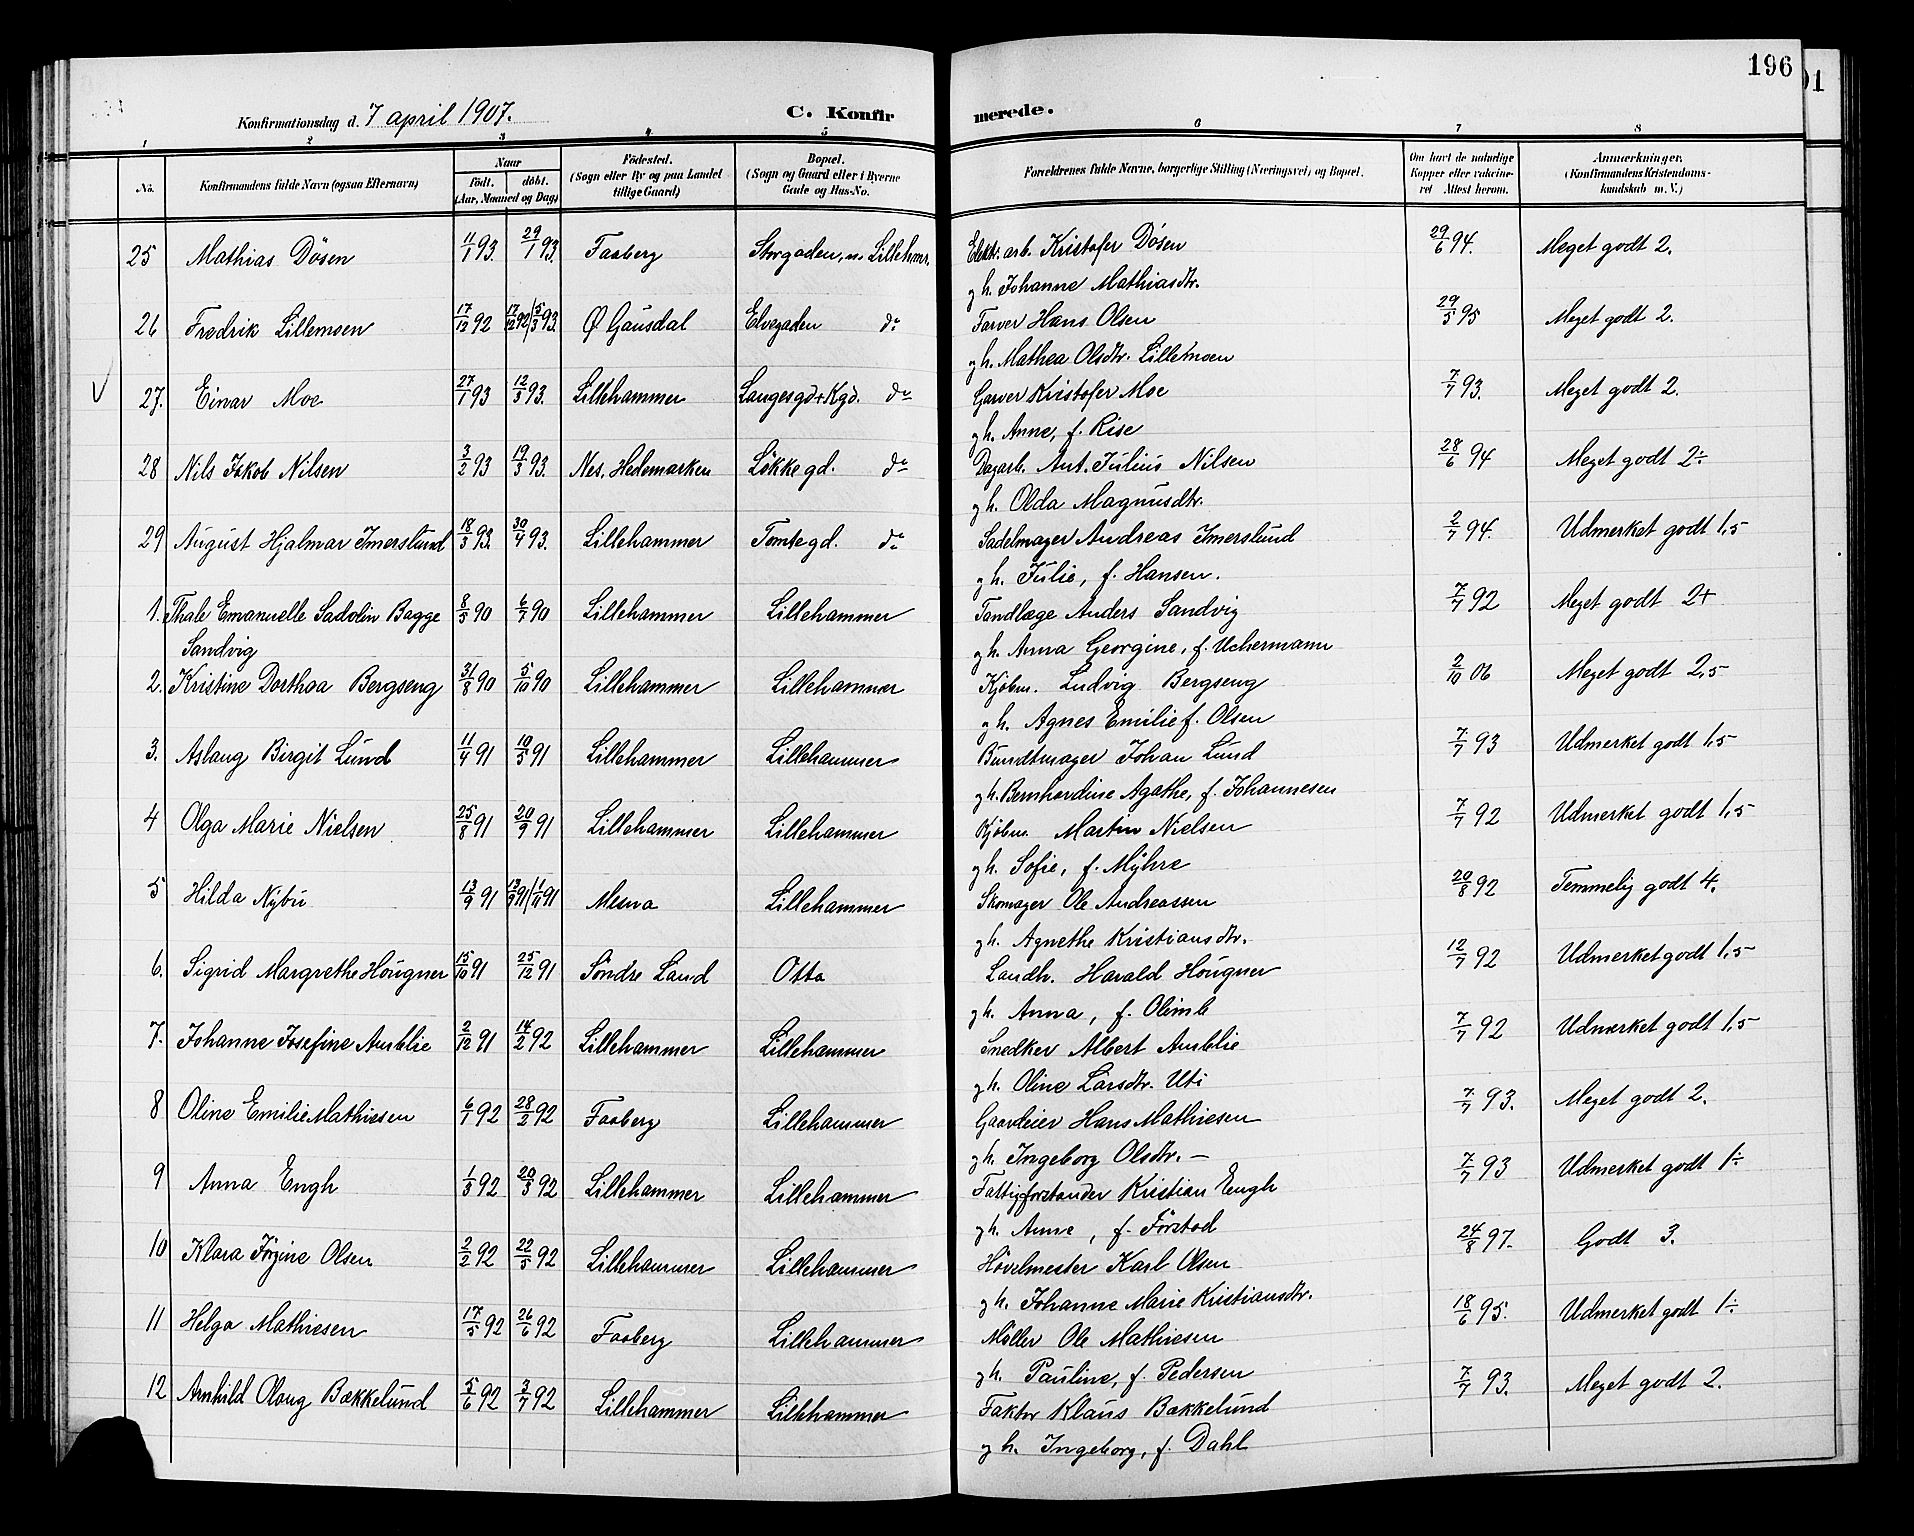 196
Konfirmationsdag d. 7 april 1907. C. Konfirmerede.
1 2 3 4 5 6 7 8
No. Konfirmandens fulde Navn (ogsaa Efternavn) Naar født. døbt. (Aar, Maaned og Dag) Fødested. (Sogn eller By og paa Landet tillige Gaard) Bopæl. (Sogn og Gaard eller i Byerne Gade og Hus-No. Forældrenes fulde Navne, borgerlige Stilling (Næringsvei) og Bopæl. Om havt de naturlige Kopper eller vakcineret Attest herom. Anmærkninger. (Konfirmandens Kristendomskundskab m. V.)
25 Mathias Døsen 11/1 93. 29/1 93. Faaberg Storgaden, n. Lillehmr. Elektr. arb. Kristofer Døsen 29/6 94. Meget godt 2.
g h. Johanne Mathiasdtr.
26 Fredrik Lillemoen 17/12 92 17/12 92/5/3 93. Ø Gausdal Elvegaden do Farver Hans Olsen 29/5 95 Meget godt 2.
g h. Mathea Olsdtr. Lillemoen
27. Einar Moe 27/1 93 12/3 93. Lillehammer Langesgd + Kgd. do Garver Kristofer Moe 7/7 93. Meget godt 2.
g h. Anne, f. Rise
28 Nils Jakob Nilsen 3/2 93 19/3 93. Nes, Hedemarken Løkkegd. do Dagarb. Ant. Julius Nilsen 28/6 94 Meget godt 2÷
g h. Olda Magnusdtr.
29 August Hjalmar Imerslund 18/3 93. 30/4 93. Lillehammer Tomtegd. do Sadelmager Andreas Imerslund 2/7 94. Udmerket godt 1,5
g h. Julie, f. Hansen.
1. Thale Emanuelle Sadolin Bagge 8/5 90 6/7 90 Lillehammer Lillehammer Tandlæge Anders Sandvig 7/7 92 Meget godt 2+
Sandvig g h. Anna Georgine, f. Uchermann
2. Kristine Dorthea Bergseng 31/8 90 5/10 90 Lillehammer Lillehammer Kjøbm. Ludvig Bergseng 2/10 06 Meget godt 2,5
g h. Agnes Emilie f. Olsen
3. Aslaug Birgit Lund 11/4 91 10/5 91 Lillehammer Lillehammer Bundtmager Johan Lund 7/7 93 Udmerket godt 1,5
g h. Bernhardine Agathe, f. Johannesen
4 Olga Marie Nielsen 25/8 91 20/9 91 Lillehammer Lillehammer Kjøbm. Martin Nielsen 7/7 92 Udmerket godt 1,5
g h. Sofie, f. Myhre
5 Hilda Nybu 13/9 91 13/9 91/1/11 91 Mesna Lillehammer Skomager Ole Andreassen 20/8 92 Temmelig godt 4.
g h. Agnethe Kristiansdtr.
6. Sigrid Margrethe Hougner 15/10 91 25/12 91 Søndre Land Otta Landh. Harald Hougner 12/7 92 Udmerket godt 1,5
g h. Anna, f. Olimb
7. Johanne Josefine Amblie 2/12 91 14/2 92 Lillehammer Lillehammer Snedker Albert Amblie 7/7 92 Udmerket godt 1,5
g h. Oline Larsdtr. Uti
8 Oline Emilie Mathiesen 6/1 92 28/2 92 Faaberg Lillehammer Gaardeier Hans Mathiesen 7/7 93. Meget godt 2.
g h. Ingeborg Olsdtr. –
9 Anna Engh 1/3 92 20/3 92 Lillehammer Lillehammer Fattigforstander Kristian Engh 7/7 93 Udmerket godt 1÷
g h. Anne, f. Førstad
10 Klara Jørgine Olsen 2/2 92 22/5 92 Lillehammer Lillehammer Høvelmester Karl Olsen 24/8 97. Godt 3.
g h. Johanne Marie Kristiansdtr.
11 Helga Mathiesen 17/5 92 26/6 92 Faaberg Lillehammer Møller Ole Mathiesen 18/6 95. Udmerket godt 1÷
g h. Pauline, f. Pedersen
12 Arnhild Olaug Bækkelund 5/6 92 3/7 92 Lillehammer Lillehammer Faktor Klaus Bækkelund 7/7 93. Meget godt 2.
g h. Ingeborg, f. Dahl